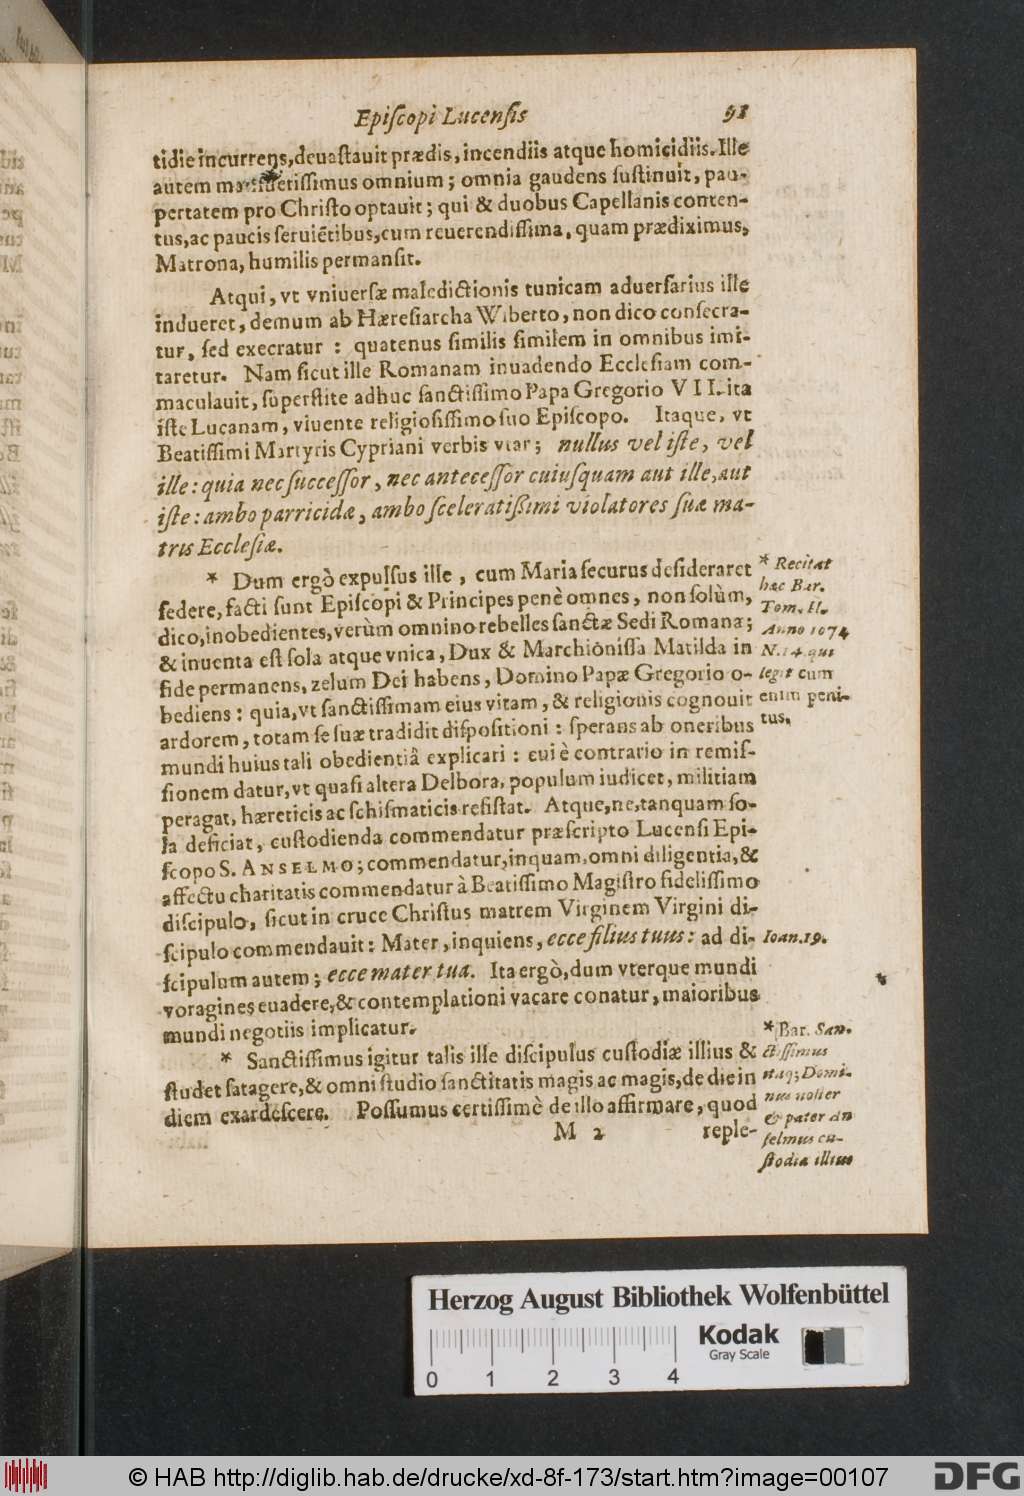 Episcopi Lucensis 91
tidie incurrens, deuastauit prædis, incendiis atque homicidiis. Ille
autem mansuetissimus omnium; omnia gaudens sustinuit, pau-
pertatem pro Christo optauit; qui & duobus Capellanis conten-
tus, ac paucis seruiẽtibus, cum reuerendissima, quam prædiximus,
Matrona, humilis permansit.
Atqui, vt vniuersæ maledictionis tunicam aduersarius ille
indueret, demum ab Hæresiarcha Wiberto, non dico consecra-
tur, sed execratur : quatenus similis similem in omnibus imi-
taretur. Nam sicut ille Romanam inuadendo Ecclesiam com-
maculauit, superstite adhuc sanctissimo Papa Gregorio VII. ita
iste Lucanam, viuente religiosissimo suo Episcopo. Itaque, vt
Beatissimi Martyris Cypriani verbis vtar; nullus vel iste, vel
ille: quia nec successor, nec antecessor cuiusquam aut ille, aut
iste: ambo parricidæ, ambo sceleratissimi violatores suæ ma-
tris Ecclesiæ.
* Dum ergò expulsus ille, cum Maria securus desideraret
sedere, facti sunt Episcopi & Principes penè omnes, non solùm,
dico, inobedientes, verùm omnino rebelles sanctæ Sedi Romanæ;
& inuenta est sola atque vnica, Dux & Marchionissa Matilda in
fide permanens, zelum Dei habens, Domino Papæ Gregorio o-
bediens: quia, vt sanctissimam eius vitam, & religionis cognouit
ardorem, totam se suæ tradidit dispositioni : sperans ab oneribus
mundi huius tali obedientiâ explicari : cui è contrario in remis-
sionem datur, vt quasi altera Delbora, populum iudicet, militiam
peragat, hæreticis ac schismaticis resistat. Atque, ne, tanquam so-
la deficiat, custodienda commendatur præscripto Lucensi Epi-
scopo S. ANSELMO; commendatur, inquam, omni diligentia, &
affectu charitatis commendatur à Beatissimo Magistro fidelissimo
discipulo, sicut in cruce Christus matrem Virginem Virgini di-
scipulo commendauit: Mater, inquiens, ecce filius tuus: ad di-
scipulum autem; ecce mater tua. Ita ergò, dum vterque mundi
voragines euadere, & contemplationi vacare conatur, maioribus
mundi negotiis implicatur.
* Sanctissimus igitur talis ille discipulus custodiæ illius &
studet satagere, & omni studio sanctitatis magis ac magis, de die in
diem exardescere. Possumus certissimè de illo affirmare, quod
M 2 reple-
* Recitat
hæc Bar.
Tom. II.
Anno 1074
N. 14. qui
legit cum
enim peni-
tus.
Ioan. 19.
* Bar. San-
ctissimus
itaq; Domi-
nus noster
& pater An
selmus cu-
stodia illius
Herzog August Bibliothek Wolfenbüttel
Kodak
Gray Scale
0 1 2 3 4
© HAB http://diglib.hab.de/drucke/xd-8f-173/start.htm?image=00107
DFG